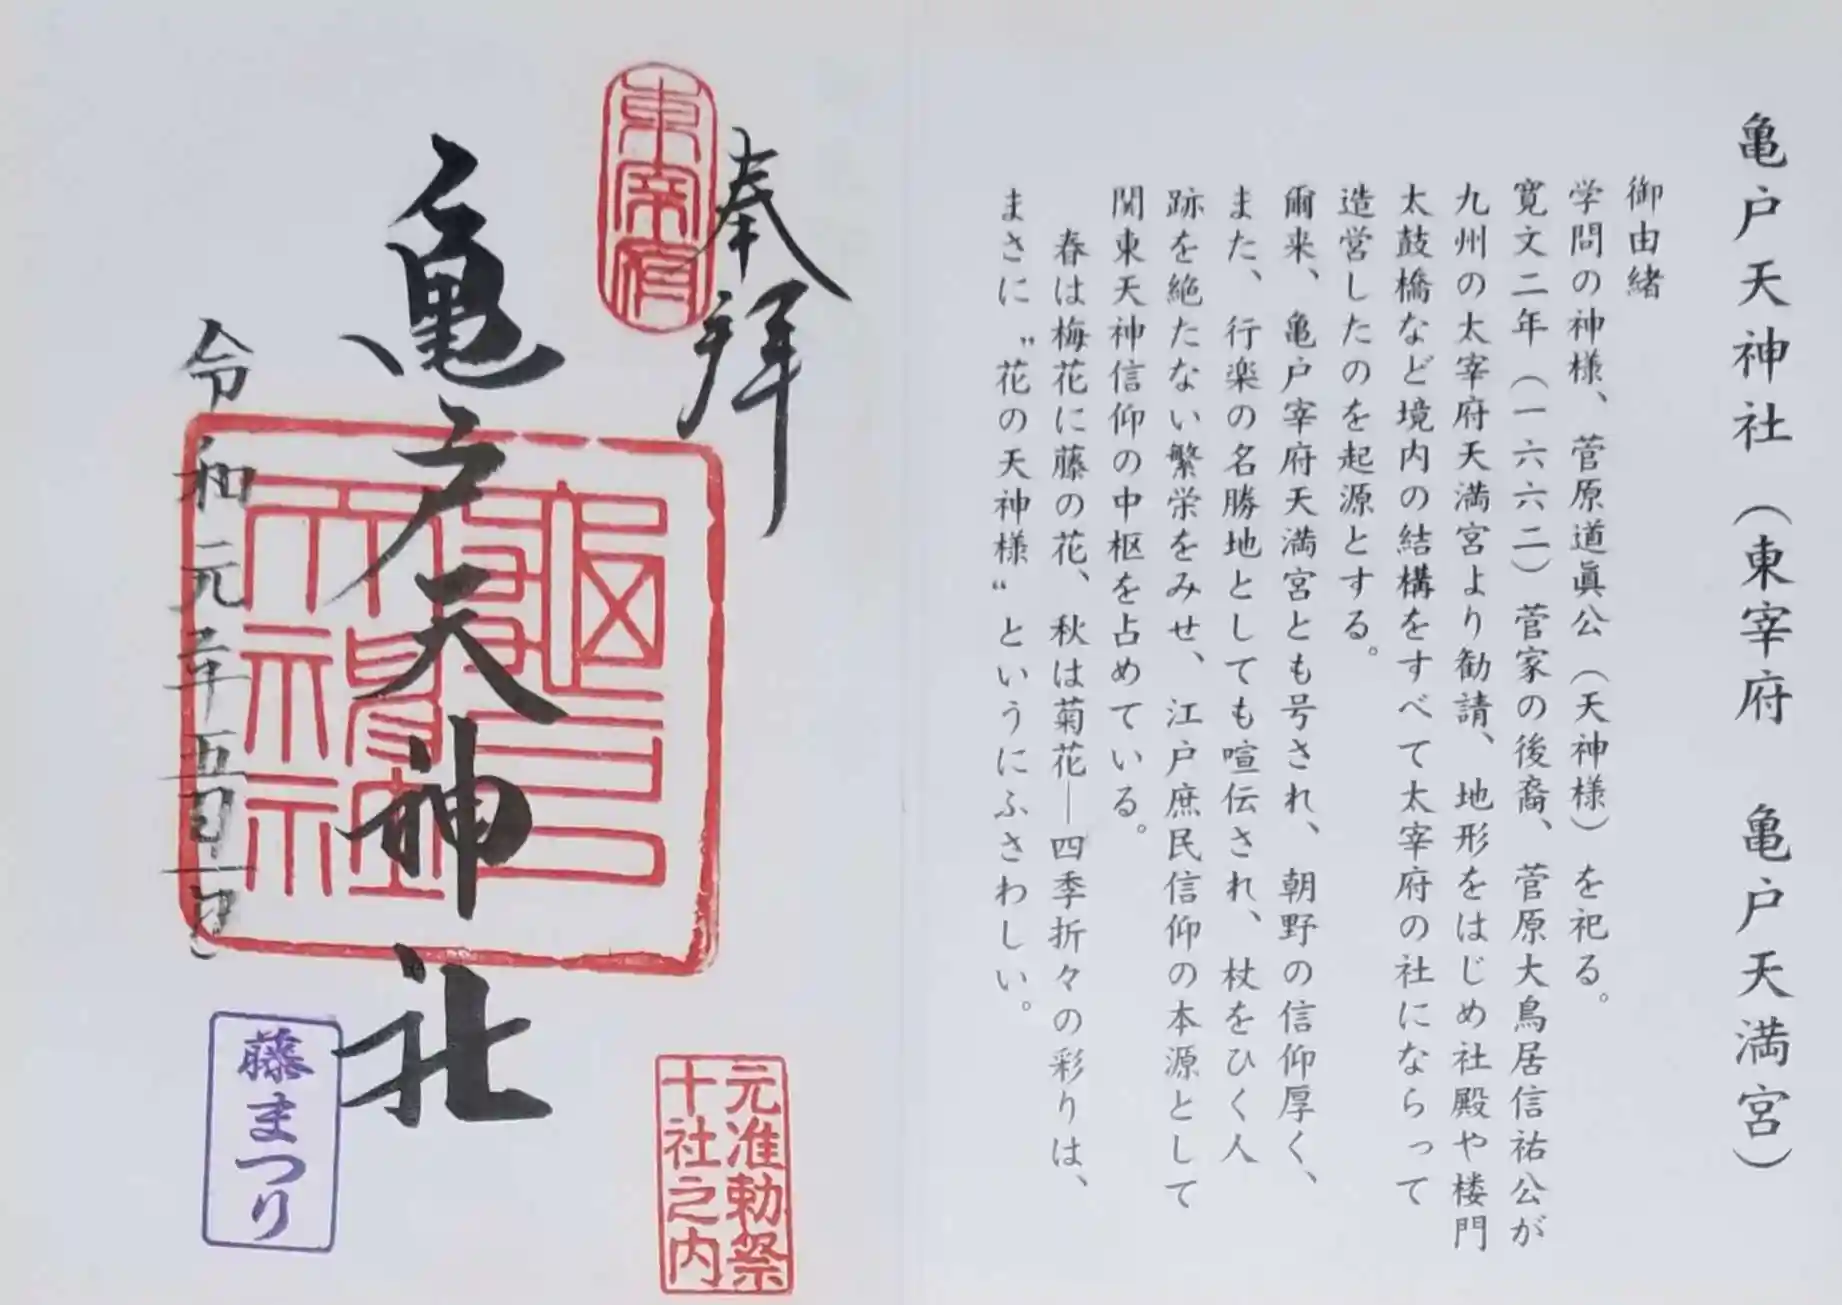 亀戸天神社（東宰府　亀戸天満宮）
御由緒
学問の神様、菅原道眞公（天神様）を祀る。
寛文二年（一六六二）菅家の後裔、菅原大鳥居信祐公が
九州の太宰府天満宮より勧請、地形をはじめ社殿や楼門
太鼓橋など境内の結構をすべて太宰府の社にならって
造営したのを起源とする。
爾来、亀戸宰府天満宮とも号され、朝野の信仰厚く、
また、行楽の名勝地としても喧伝され、杖をひく人
跡を絶たない繁栄をみせ、江戸庶民信仰の本源として
関東天神信仰の中枢を占めている。
春は梅花に藤の花、秋は菊花―四季折々の彩りは、
まさに〝花の天神様〟というにふさわしい。
奉拝
東宰府
亀戸天神社
亀戸
天神社
令和元年五月一日
元准勅祭
十社之内
藤まつり